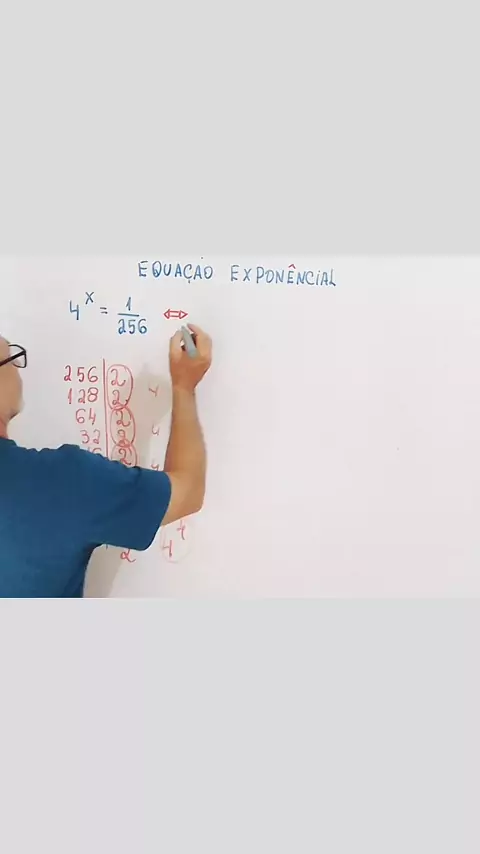 EQUAÇÃO EXPONÊNCIAL
4^x = 1/256 ⇔
256 | 2
128 | 2 4
64 | 2
32 | 2 4
2 4
2 4^4